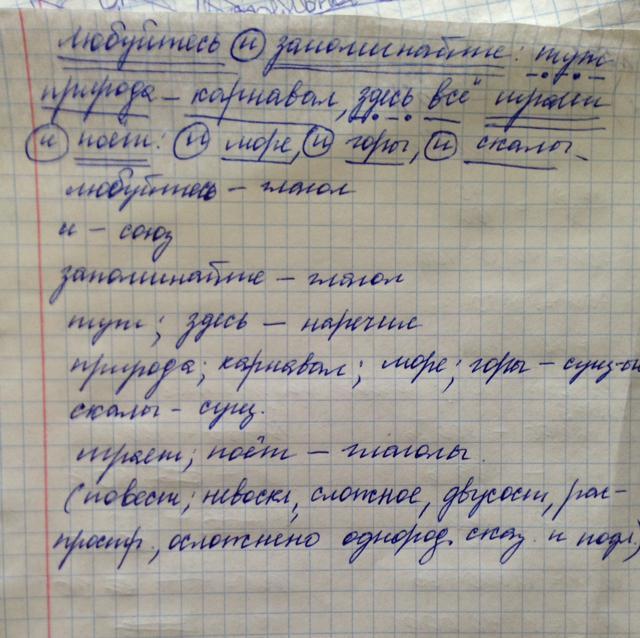 любуйтесь и запоминайте: тут
природа – карнавал, здесь всё играет
и поёт: и море, и горы, и скалы.
любуйтесь – глагол
и – союз
запоминайте – глагол
тут; здесь – наречия
природа; карнавал; море; горы – сущ-ые
скалы – сущ.
играет; поёт – глаголы.
(повест; невоскл, сложное, двусост, рас-
простр., осложнено однород. сказ. и подл.)